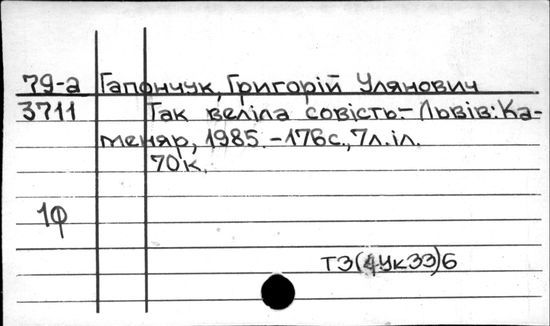 79-а Гапончук, Григорій Улянович
3711 Так веліла совість.- Львів: Ка-
меняр, 1985. -176с., 7л.іл.
70к.
1ф
Т3(4Ук33)6